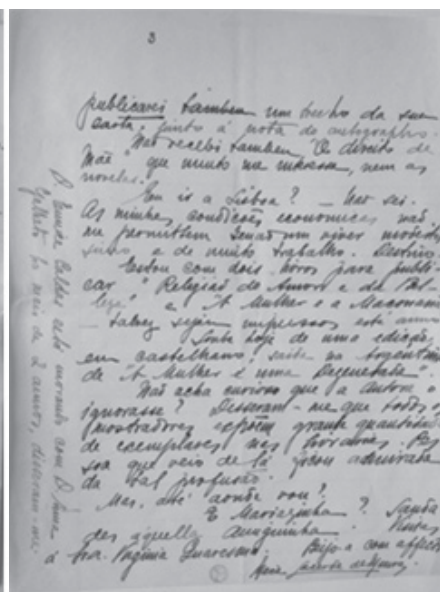 3
publicarei tambem um trecho da sua
carta, junto á nota do autographo.
Não recebi tambem "O direito de
Mãe" que muito me interessa, nem as
novelas.
Eu ir a Lisboa? — Não sei.
As minhas condições economicas não
me permittem senão um viver modestis-
simo e de muito trabalho. Destino.
Estou com dois livros para publi-
car "Religião do Amor e da Bel-
leza" e "A Mulher e a Maçonaria"
— talvez sejam impressos este anno
Soube hoje de uma edição,
em castelhano, saida na Argentina
de "A Mulher é uma Degenerada".
Não acha curioso que a autora o
ignorasse? Disseram-me que todos os
mostradores expõem grande quantidade
de exemplares nas livrarias. Pes-
soa que veio de lá ficou admirada
da tal profusão.
Mas, até aonde vou?
E Mariazinha? Sauda
des áquella amiguinha.
á Sra. Virginia Quaresma. Beijo-a com affecto
Maria Lacerda de Moura
D. está morando com D.
ha mais de 2 annos, disseram-me.